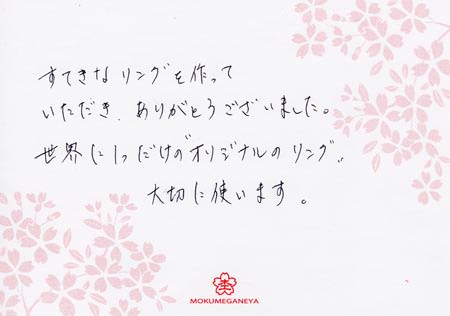 すてきなリングを作って
いただき、ありがとうございました。
世界に1つだけのオリジナルのリング、
大切に使います。
MOKUMEGANEYA